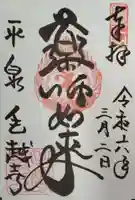 奉拝
令和六年
三月二日
薬師如来
平泉
毛越寺